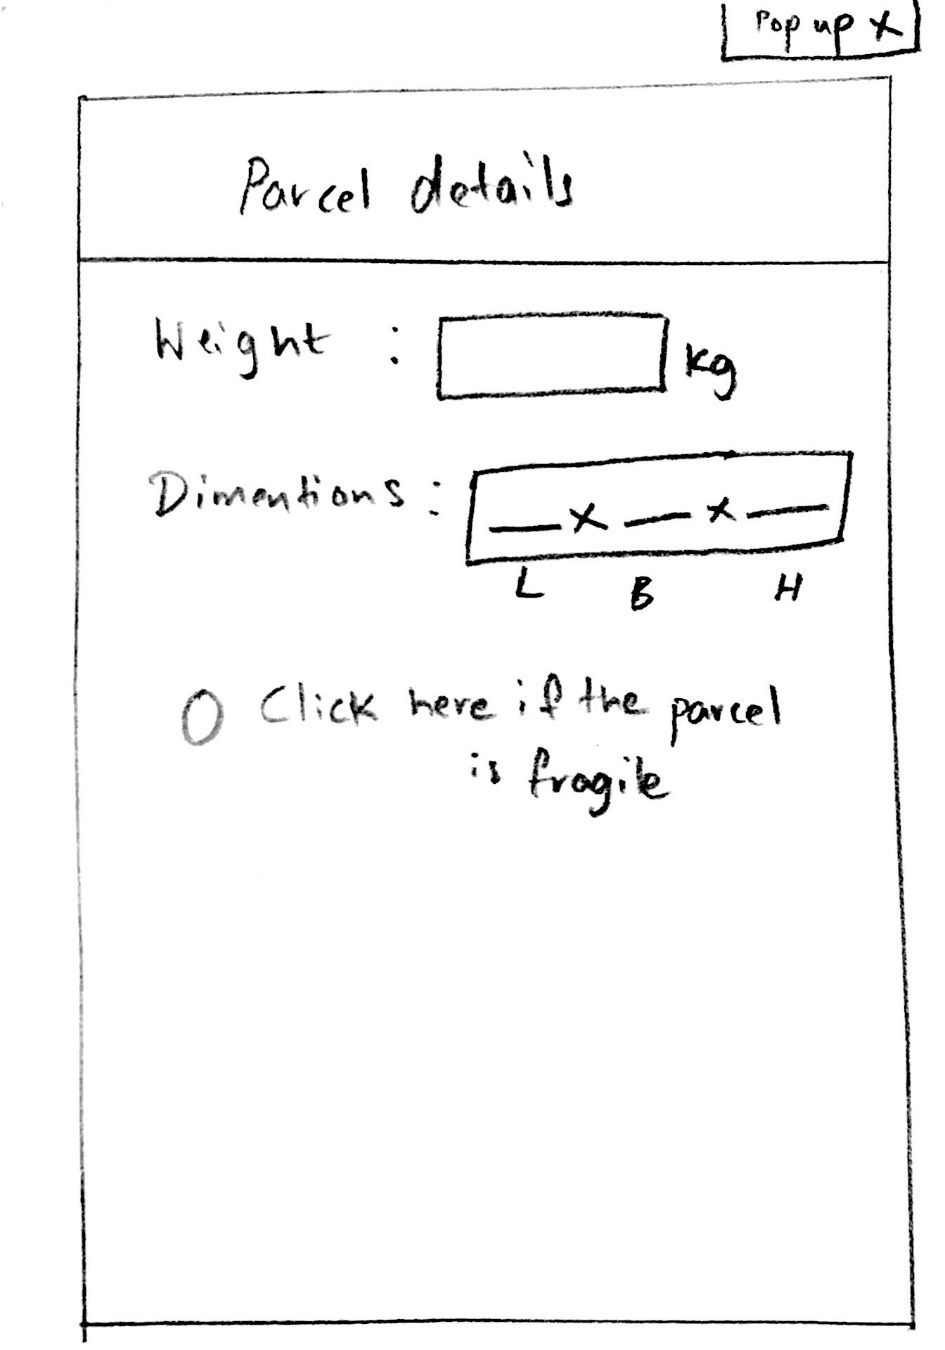 Pop up X
Parcel details
Weight : kg
Dimentions : __ x __ x __
L B H
Click here if the parcel
is fragile